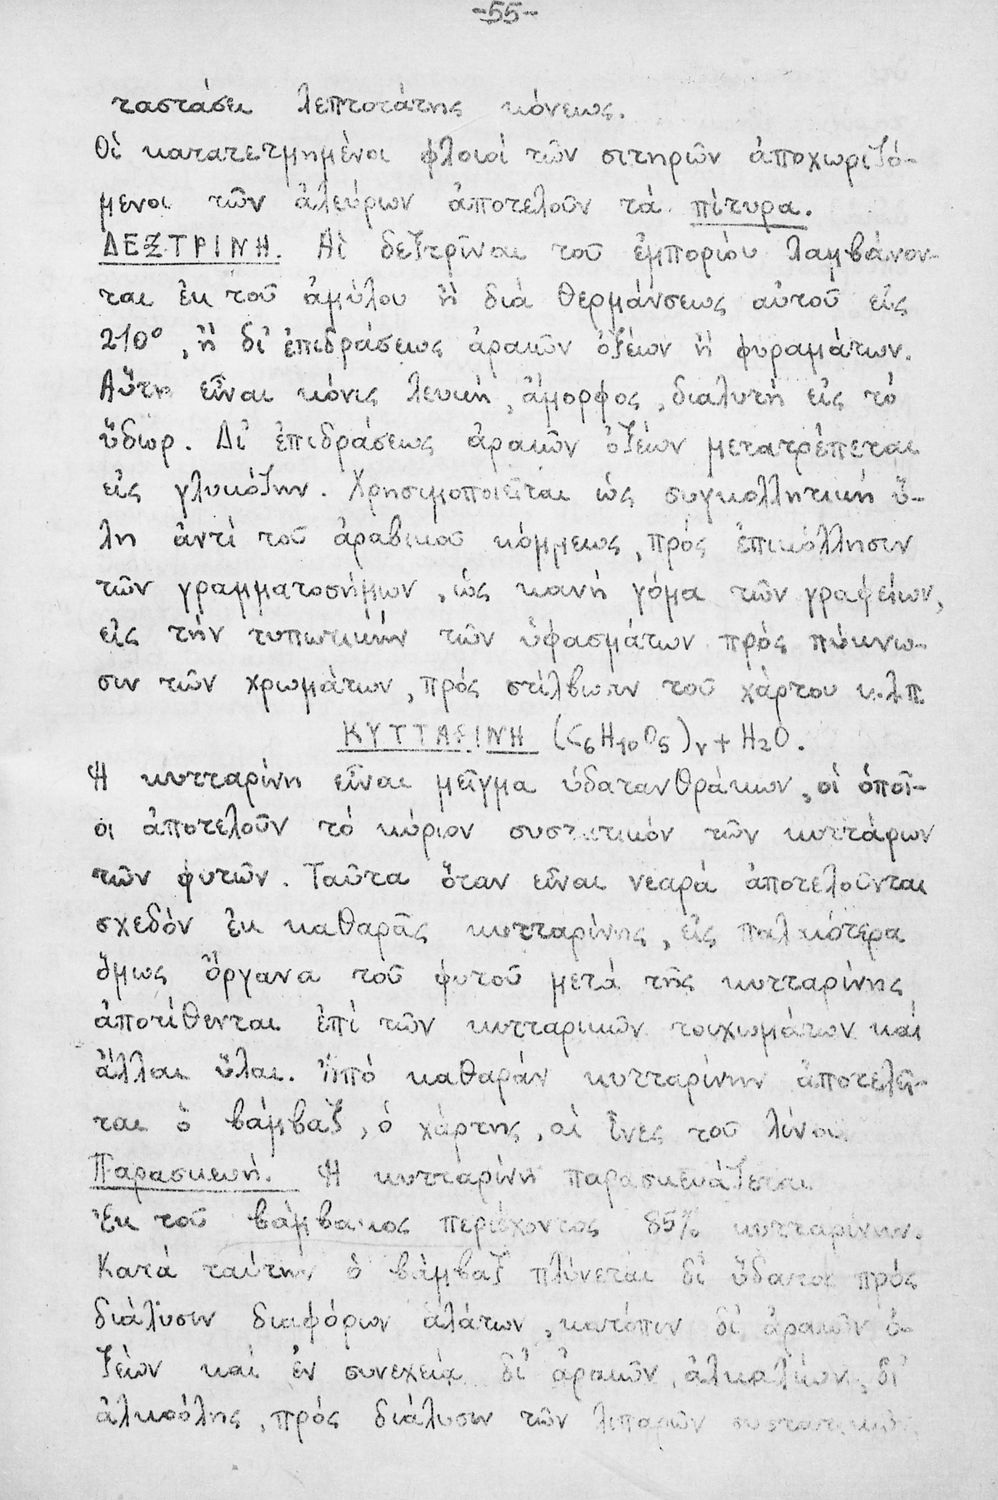 -55-
ταστάσει λεπτοτάτης κόνεως.
Οἱ κατατετμημένοι φλοιοί τῶν σιτηρῶν ἀποχωριζό-
μενοι τῶν ἀλεύρων ἀποτελοῦν τά πίτυρα.
ΔΕΞΤΡΙΝΗ. Αἱ δεξτρῖναι τοῦ ἐμπορίου λαμβάνον-
ται ἐκ τοῦ ἀμύλου ἤ διά θερμάνσεως αὐτοῦ εἰς
210°, ἤ δι' ἐπιδράσεως ἀραιῶν ὀξέων ἤ φυραμάτων.
Αὕτη εἶναι κόνις λευκή, ἄμορφος, διαλυτή εἰς τό
ὕδωρ. Δι' ἐπιδράσεως ἀραιῶν ὀξέων μετατρέπεται
εἰς γλυκόζην. Χρησιμοποιεῖται ὡς συγκολλητική ὕ-
λη ἀντί τοῦ ἀραβικοῦ κόμμεως, πρός ἐπικόλλησιν
τῶν γραμματοσήμων, ὡς κοινή γόμα τῶν γραφείων,
εἰς τήν τυπωτικήν τῶν ὑφασμάτων πρός πύκνω-
σιν τῶν χρωμάτων, πρός στίλβωσιν τοῦ χάρτου κ.λ.π.
ΚΥΤΤΑΡΙΝΗ (C₆H₁₀O₅)ᵥ + H₂O.
Ἡ κυτταρίνη εἶναι μεῖγμα ὑδατανθράκων, οἱ ὁποῖ-
οι ἀποτελοῦν τό κύριον συστατικόν τῶν κυττάρων
τῶν φυτῶν. Ταῦτα ὅταν εἶναι νεαρά ἀποτελοῦνται
σχεδόν ἐκ καθαρᾶς κυτταρίνης, εἰς παλαιότερα
ὅμως ὄργανα τοῦ φυτοῦ μετά τῆς κυτταρίνης
ἀποτίθενται ἐπί τῶν κυτταρικῶν τοιχωμάτων καί
ἄλλαι ὕλαι. Ἀπό καθαράν κυτταρίνην ἀποτελεῖ-
ται ὁ βάμβαξ, ὁ χάρτης, αἱ ἶνες τοῦ λίνου.
Παρασκευή. Ἡ κυτταρίνη παρασκευάζεται
ἐκ τοῦ βάμβακος περιέχοντος 85% κυτταρίνην.
Κατά ταύτην ὁ βάμβαξ πλύνεται δι' ὕδατος πρός
διάλυσιν διαφόρων ἁλάτων, κατόπιν δι' ἀραιῶν ὀ-
ξέων καί ἐν συνεχείᾳ δι' ἀραιῶν ἀλκαλίων, δι'
ἀλκοόλης, πρός διάλυσιν τῶν λιπαρῶν συστατικῶν